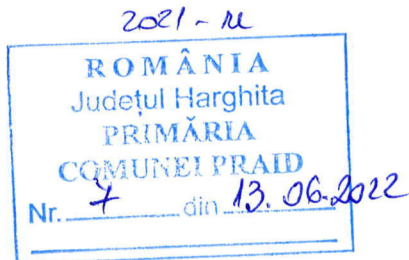 2021 - re
ROMÂNIA
Județul Harghita
PRIMĂRIA
COMUNEI PRAID
Nr. 7 din 13.06.2022